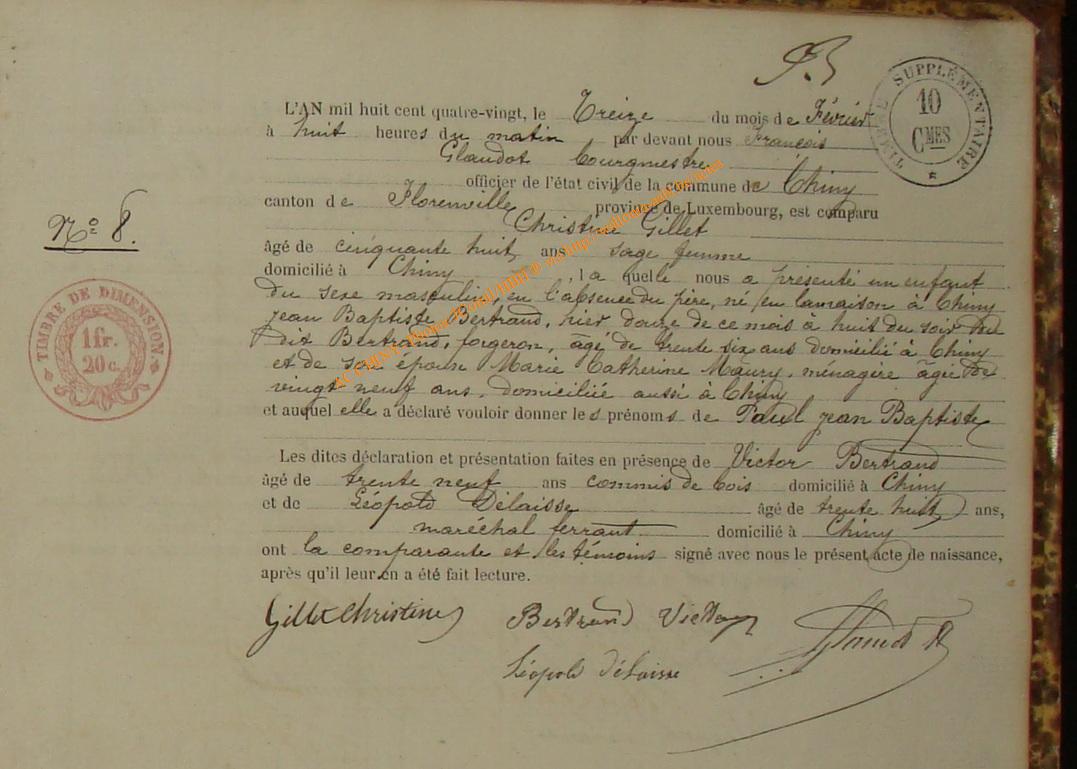 TIMBRE SUPPLÉMENTAIRE
10
CMES
L'AN mil huit cent quatre-vingt, le Treize du mois de Février
à huit heures du matin par devant nous François
Glaudot bourgmestre
officier de l'état civil de la commune de Chiny
canton de Florenville province de Luxembourg, est comparu
Nº 8.
Christine Gillet
âgé de cinquante huit ans sage femme
domicilié à Chiny, la quelle nous a présenté un enfant
du sexe masculin, en l'absence du père, né en la maison à Chiny
TIMBRE DE DIMENSION
1fr.
20 c.
Jean Baptiste Bertrand, hier douze de ce mois à huit du soir
dit Bertrand, forgeron, âgé de trente six ans domicilié à Chiny
et de son épouse Marie Catherine Maury, ménagère âgée de
vingt neuf ans, domiciliée aussi à Chiny
et auquel elle a déclaré vouloir donner les prénoms de Paul Jean Baptiste
Les dites déclaration et présentation faites en présence de Victor Bertrand
âgé de trente neuf ans commis de bois domicilié à Chiny
et de Léopold Délaisse âgé de trente huit ans,
maréchal ferrant domicilié à Chiny
ont la comparante et les témoins signé avec nous le présent acte de naissance,
après qu'il leur en a été fait lecture.
Gillet Christine Bertrand Victor
Léopold Délaisse